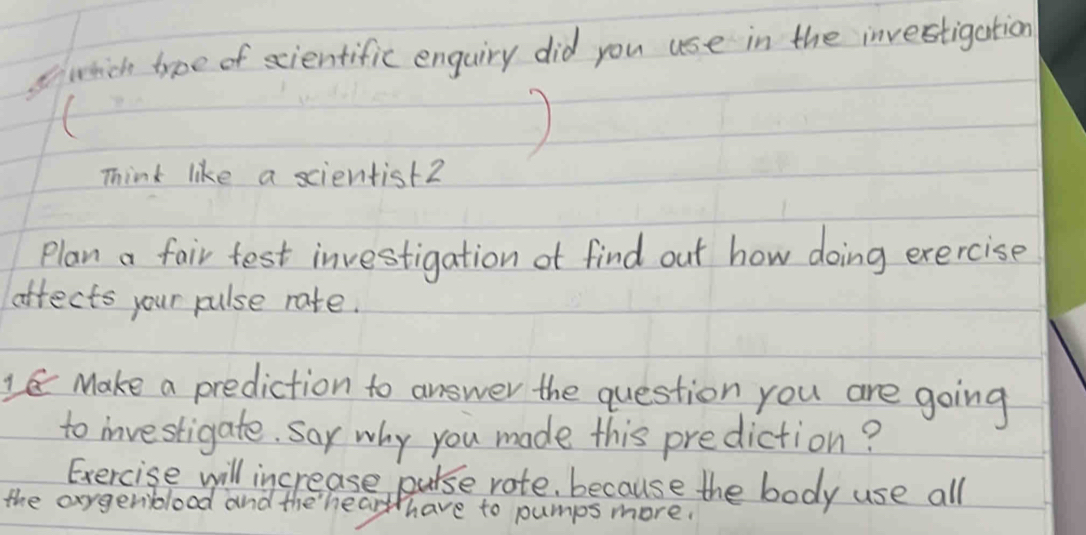 which type of scientific enquiry did you use in the investigation
( )
Think like a scientist 2
Plan a fair test investigation ot find out how doing exercise
affects your pulse rate.
1 Make a prediction to answer the question you are going
to investigate. Say why you made this prediction?
Exercise will increase pulse rate. because the body use all
the oxygen blood and the heart have to pumps more.